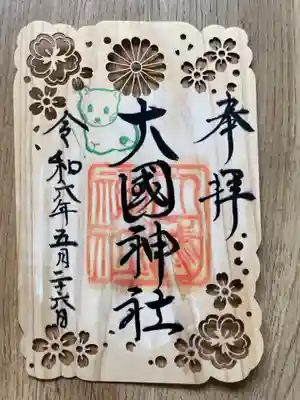 奉拝
大國神社
令和六年五月二十六日